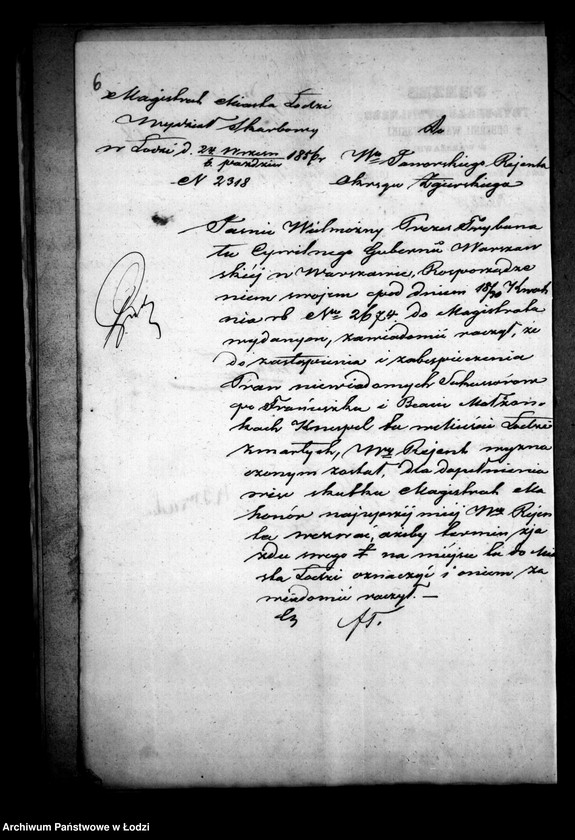 6
Magistrat Miasta Łodzi
Wydział Skarbowy
w Łodzi d. 24 Wrześn
6 paździer 1856 r
N 2318
Do
Wgo Jaworskiego Rejenta
Okręgu Zgierskiego
Jaśnie Wielmożny Prezes Trybuna
łu Cywilnego Gubernii Warszaw
skiéj w Warszawie, Rozporządze
niem swojem pod dniem 18/30
nia rb Nr 2674 do Magistratu
wydanym, zawiadomić raczył, że
do zastąpienia i zabezpieczenia
Praw niewiadomych Sukcesorów
po Franciszku i Beacie Małżon
kach Knespel tu w mieście Łodzi
zmarłych, Wny Rejent wyzna
czonym został, dla dopełnienia
więc skutku Magistrat ma
honór najuprzejmiej Wgo Rejen
ta wezwać, ażeby termin zja
zdu swego na miejsce tu do Mia
sta Łodzi oznaczyć i oniem za
wiadomić raczył. —
Archiwum Państwowe w Łodzi